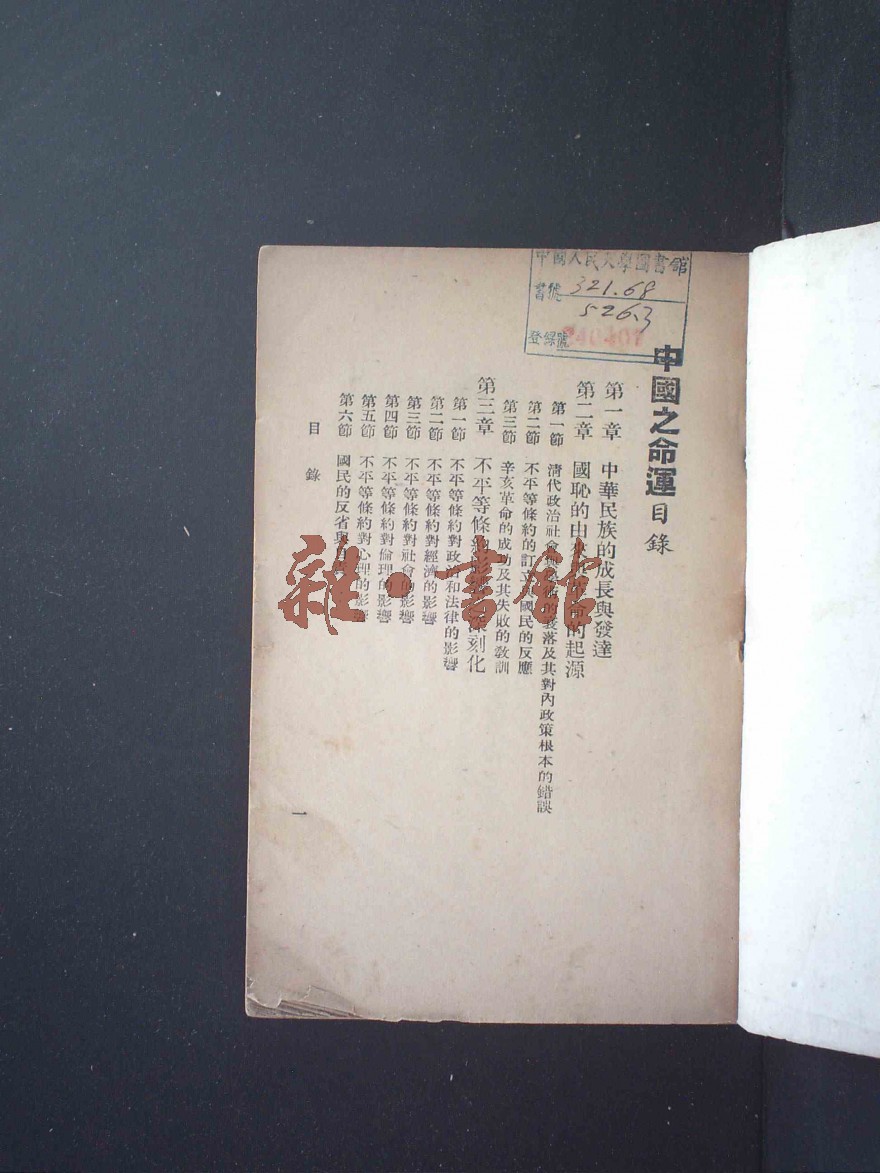 中國人民大學圖書館
書號 321.68
526.3
登録號
中國之命運目錄
第一章 中華民族的成長與發達
第二章 國恥的由來 革命的起源
第一節 清代政治社會 的衰落及其對內政策根本的錯誤
第二節 不平等條約的訂立 國民的反應
第三節 辛亥革命的成功及其失敗的敎訓
第三章 不平等條 深刻化
第一節 不平等條約對政治和法律的影響
第二節 不平等條約對經濟的影響
第三節 不平等條約對社會的影響
第四節 不平等條約對倫理的影響
第五節 不平等條約對心理的影響
第六節 國民的反省與
目錄
一
雜·書館